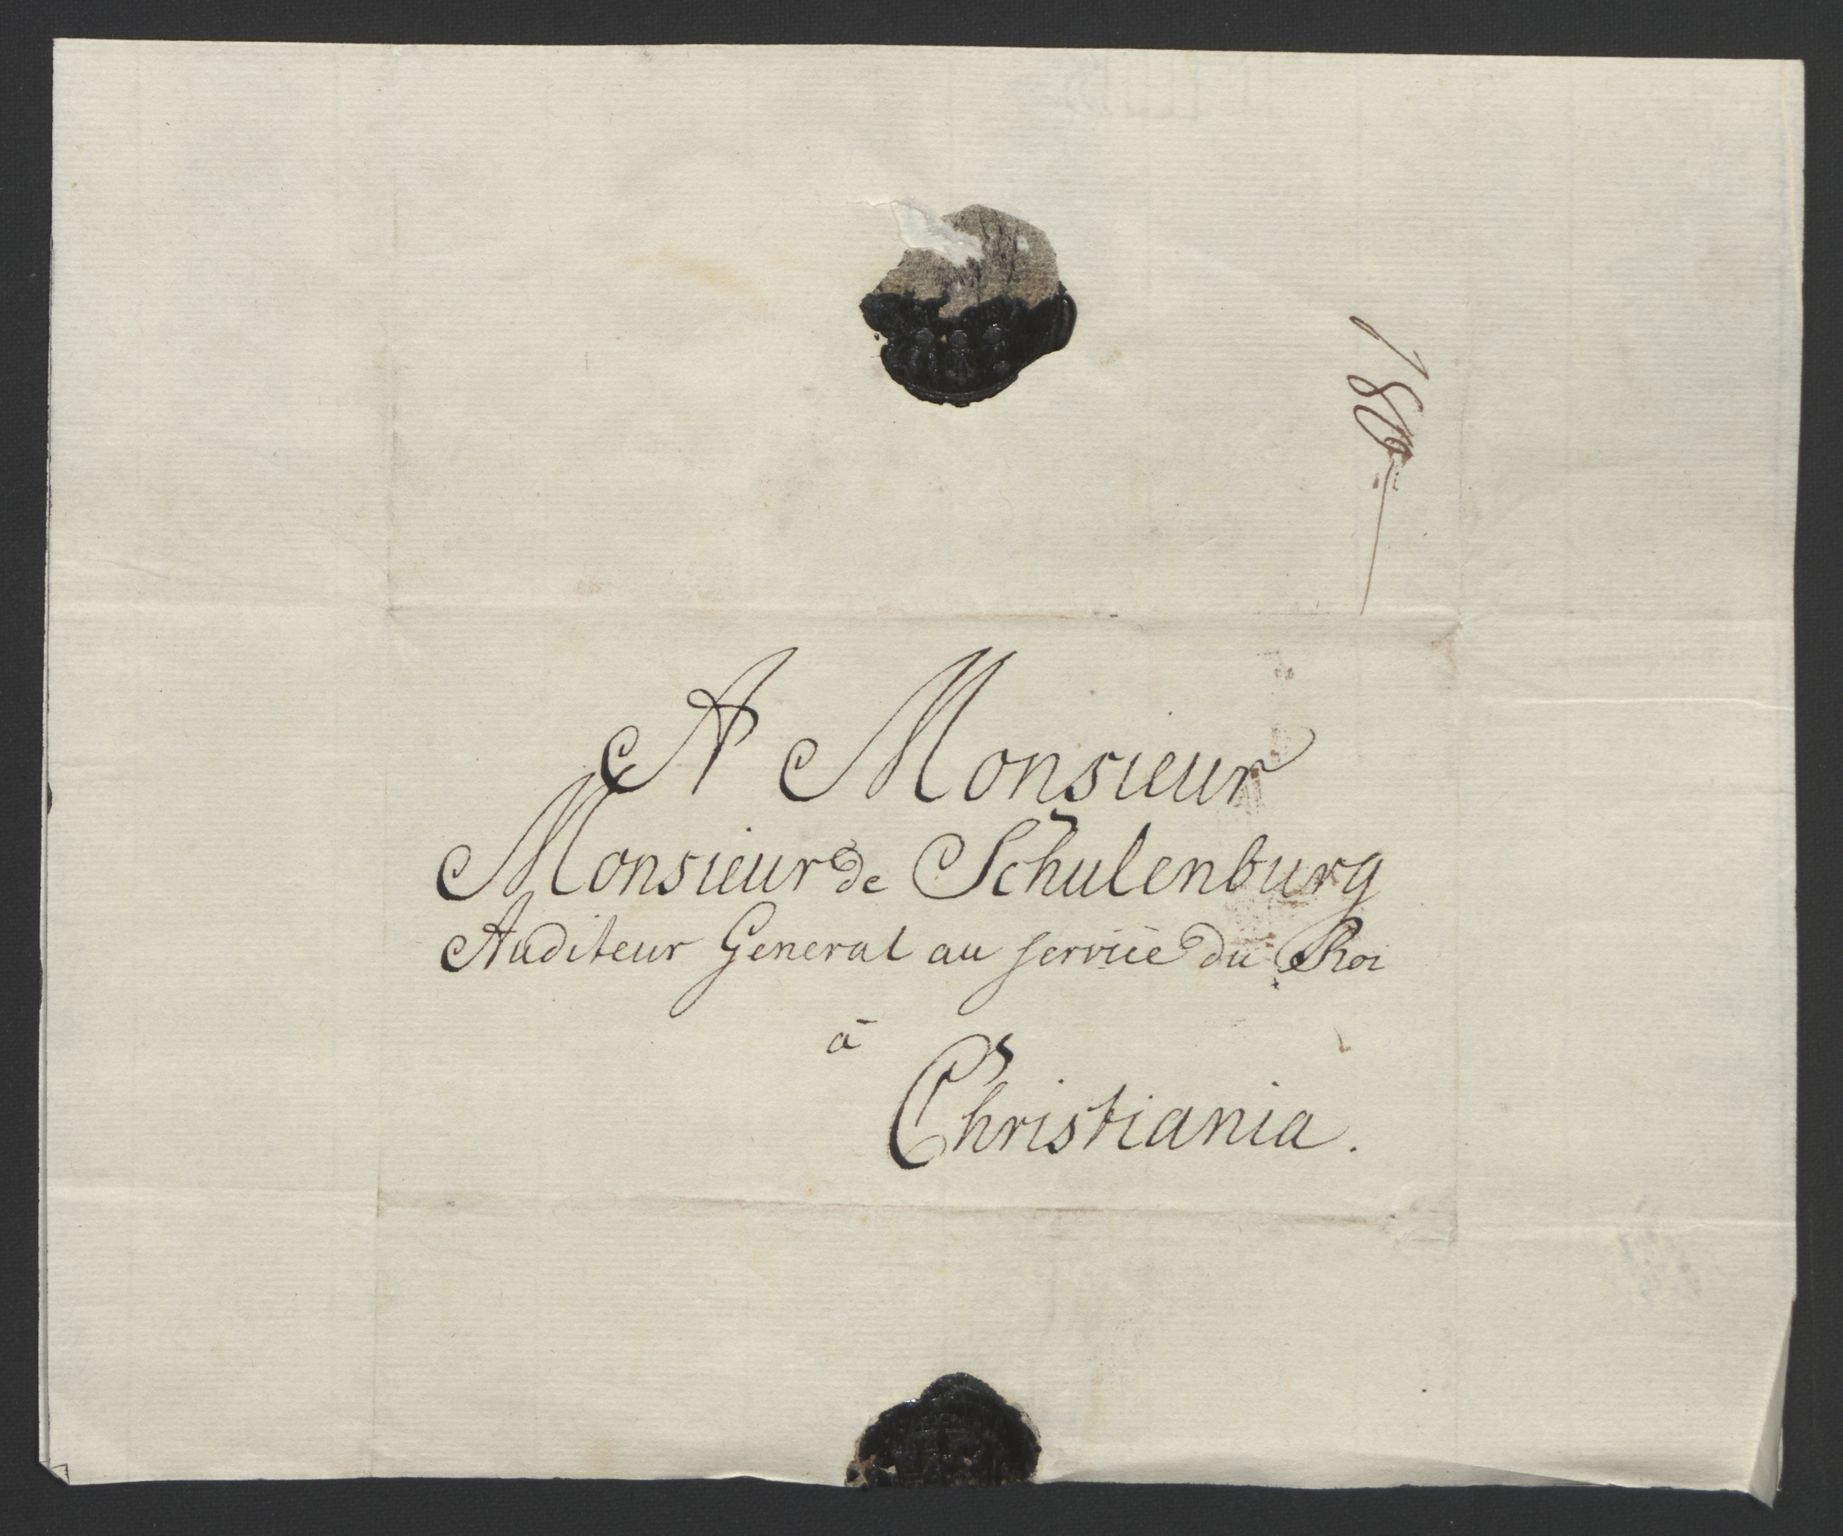 A Monsieur
Monsieur de Schulenburg
Auditeur General au service du Roi
à
Christiania.